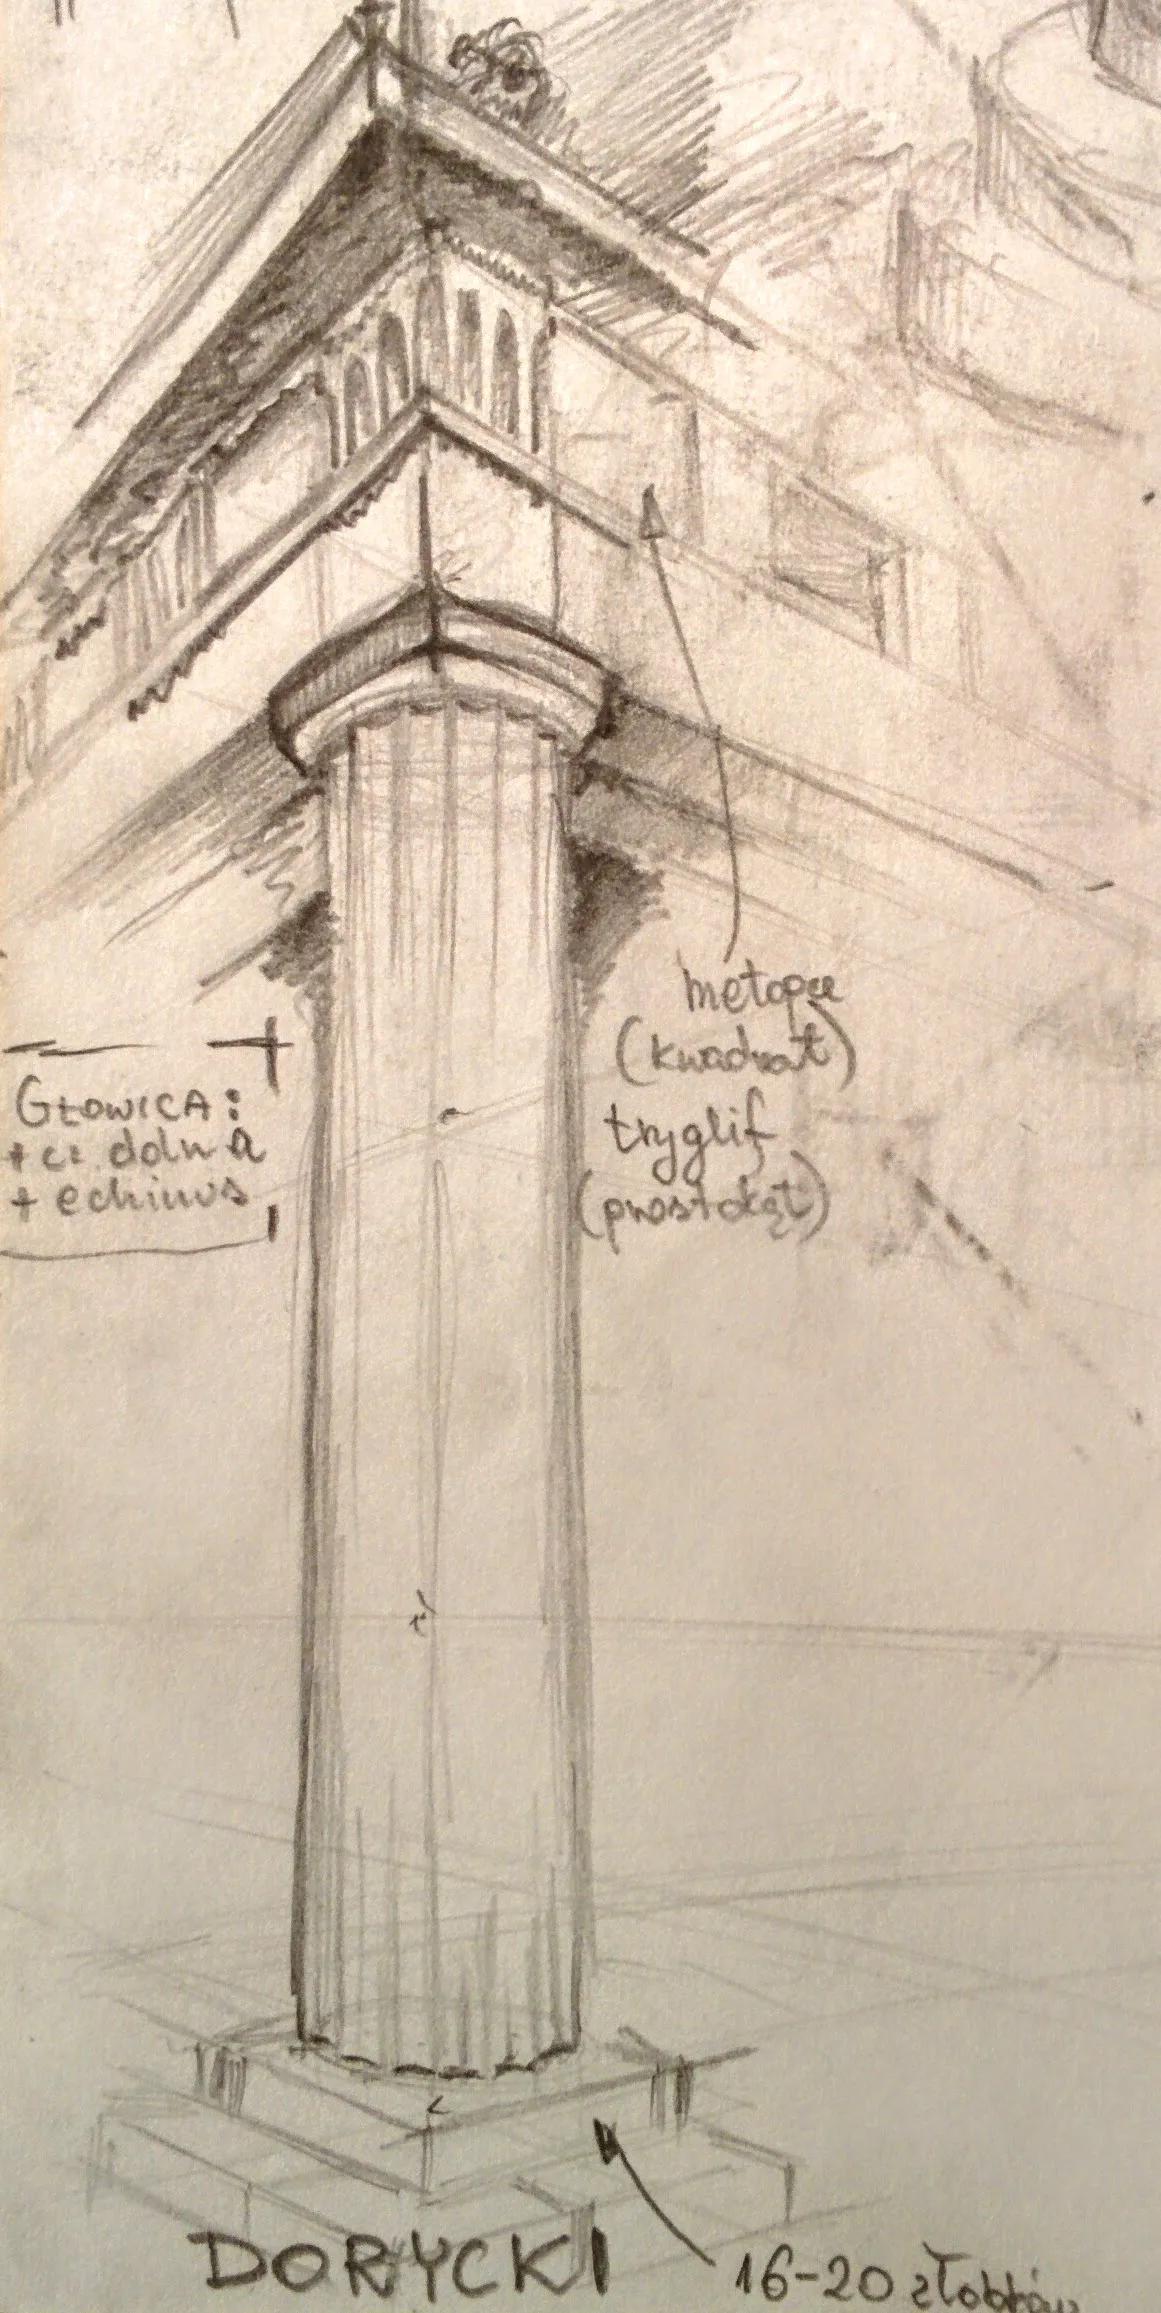 metopee
(kwadrat)
tryglif
(prostokąt)
GŁOWICA:
+ cz. dolna
+ echinus
DORYCKI
16-20 żłobków